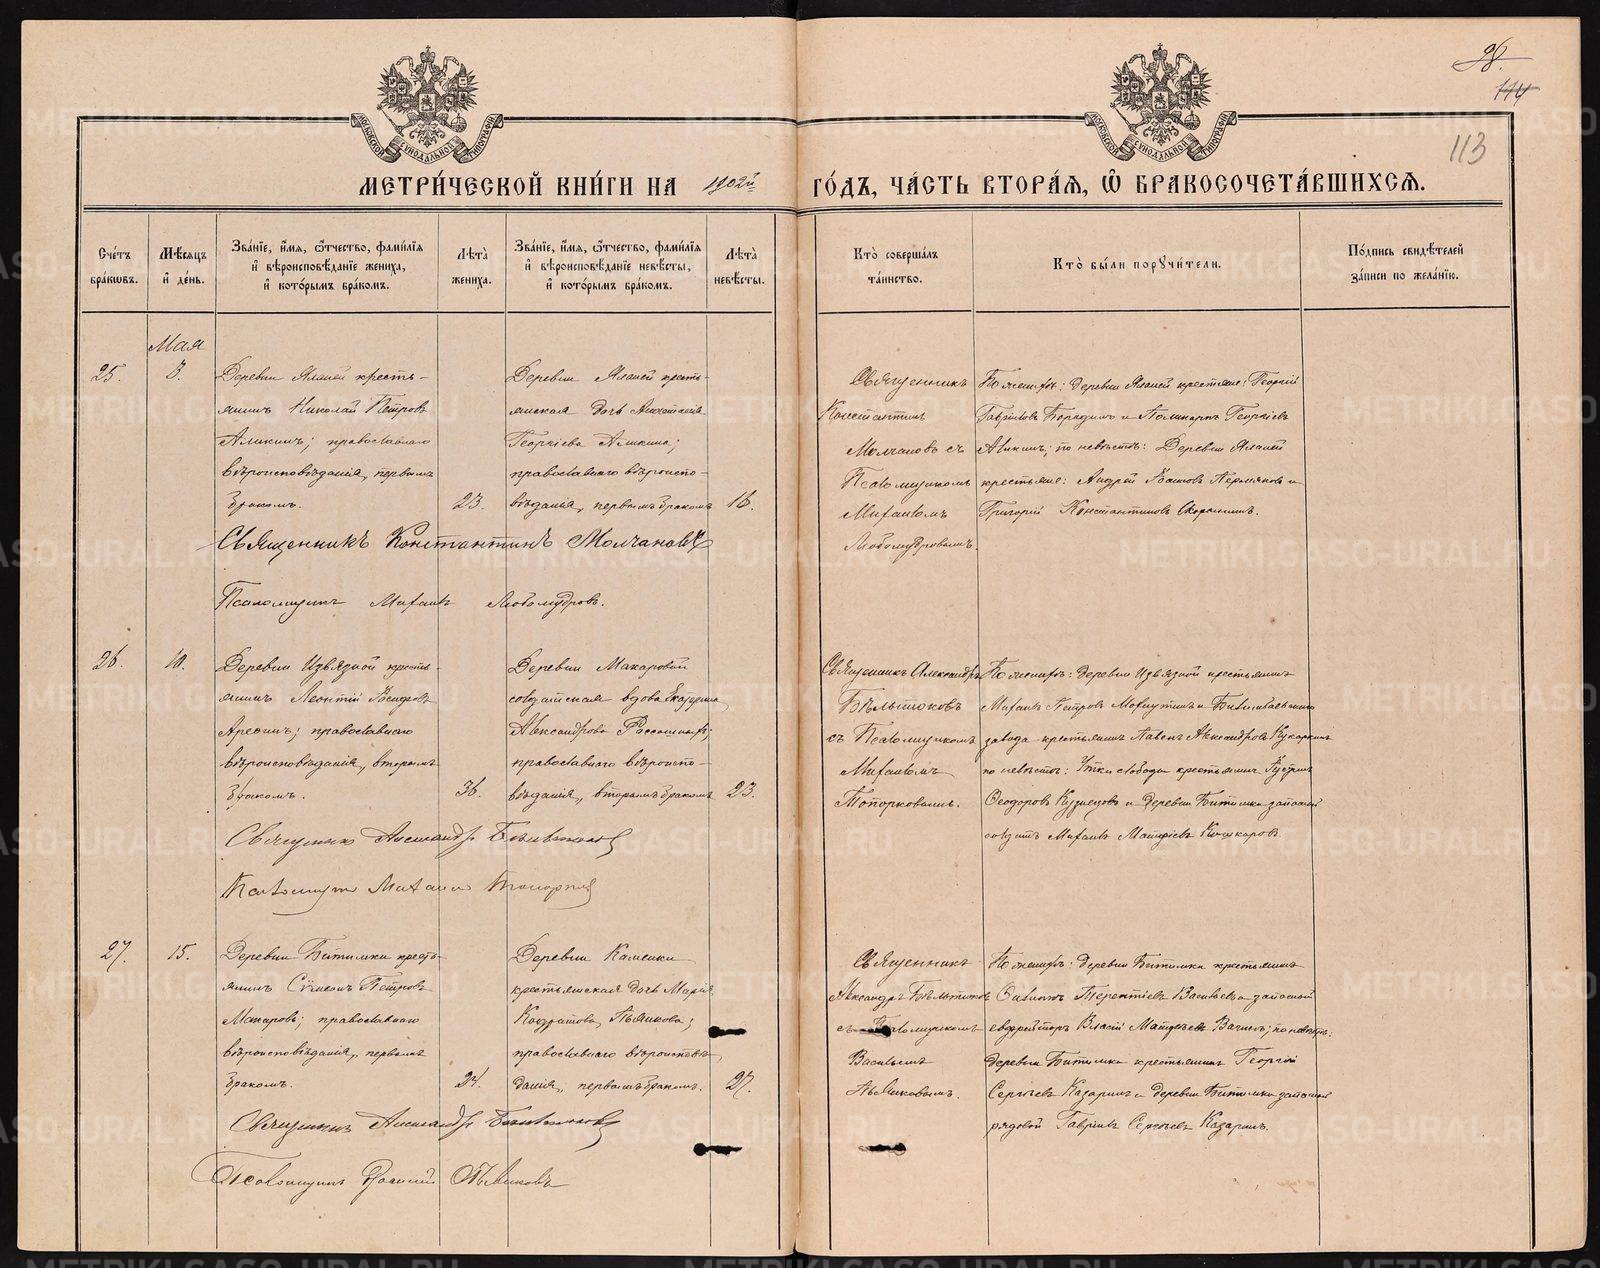 98.
114
113
МЕТРИ́ЧЕСКОЙ КНИ́ГИ НА 1902й ГО́ДЪ, ЧА́СТЬ ВТОРА́Я, Ѽ БРАКОСОЧЕТА́ВШИХСЯ.
МОСКОВСКОЙ СУНОДАЛЬНОЙ ТИПОГРАФІИ
МОСКОВСКОЙ СУНОДАЛЬНОЙ ТИПОГРАФІИ
Сче́тъ бра́кѡвъ.
Мѣ́сяцъ и҆ де́нь.
Зва́нїе, и҆́мя, ѻ҆́тчество, фами́лїя и҆ вѣроисповѣ́данїе жениха̀, и҆ кото́рымъ бра́комъ.
Лѣ́та жениха̀.
Зва́нїе, и҆́мя, ѻ҆́тчество, фами́лїя и҆ вѣроисповѣ́данїе невѣ́сты, и҆ кото́рымъ бра́комъ.
Лѣ́та невѣ́сты.
Кто̀ соверша́лъ та́инство.
Кто̀ бы́ли порꙋчи́тели.
По́дпись свидѣ́телей за́писи по жела́нїю.
Мая
25.
8.
Деревни Яланей кресть-
янинъ Николай Петровъ
Аликинъ; православнаго
вѣроисповѣданія, первымъ
бракомъ.
23.
Деревни Яланей кресть-
янская дочь Анастасія
Георгіева Аликина;
православнаго вѣроиспо-
вѣданія, первымъ бракомъ
18.
Священникъ
Константинъ
Молчановъ съ
Псаломщикомъ
Михаиломъ
Любомудровымъ.
По женихѣ: деревни Яланей крестьяне: Георгій
Гавриловъ и Поликарпъ Георгіевъ
Аликинъ; по невѣстѣ: Деревни Яланей
крестьяне: Андрей Пермяковъ и
Григорій Константиновъ
Священникъ Константинъ Молчановъ
Псаломщикъ Михаилъ Любомудровъ.
26.
10.
Деревни Извязной кресть-
янинъ Леонтій Іосифовъ
Арефинъ; православнаго
вѣроисповѣданія, вторымъ
бракомъ.
36.
Деревни Макаровой
солдатская вдова Екатерина
Александрова
православнаго вѣроиспо-
вѣданія, вторымъ бракомъ
23.
Священникъ Александръ
Бѣльтюковъ
съ Псаломщикомъ
Михаиломъ
Топорковымъ.
По женихѣ: деревни Извязной крестьянинъ
Михаилъ Петровъ и Билимбаевскаго
завода крестьянинъ Павелъ Александровъ
по невѣстѣ: Утки слободы крестьянинъ
Ѳеодоровъ Кузнецовъ и деревни Битимки запасный
солдатъ Михаилъ Матѳіевъ Кошкаровъ.
Священникъ Александръ Бѣльтюковъ
Псаломщикъ Михаилъ Топорковъ
27.
15.
Деревни Битимки кресть-
янинъ Сѷмеонъ Петровъ
Макаровъ; православнаго
вѣроисповѣданія, первымъ
бракомъ.
24.
Деревни Каменки
крестьянская дочь Марія
Кондратова Пьянкова;
православнаго вѣроисповѣ-
данія, первымъ бракомъ.
27.
Священникъ
Александръ Бѣльтюковъ
съ Псаломщикомъ
Василіемъ
Пьянковымъ.
По женихѣ: деревни Битимки крестьянинъ
Терентіевъ Васильевъ и запасный
ефрейторъ Власій Матѳеевъ; по невѣстѣ:
деревни Битимки крестьянинъ Георгій
Сергіевъ Казаринъ и деревни Битимки запасный
рядовой Гавріилъ Сергіевъ Казаринъ.
Священникъ Александръ Бѣльтюковъ
Псаломщикъ Василій Пьянковъ
METRIKI.GASO-URAL.RU